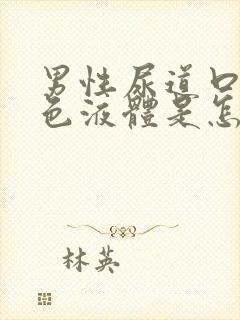 男性尿道口
色液體是怎
林英